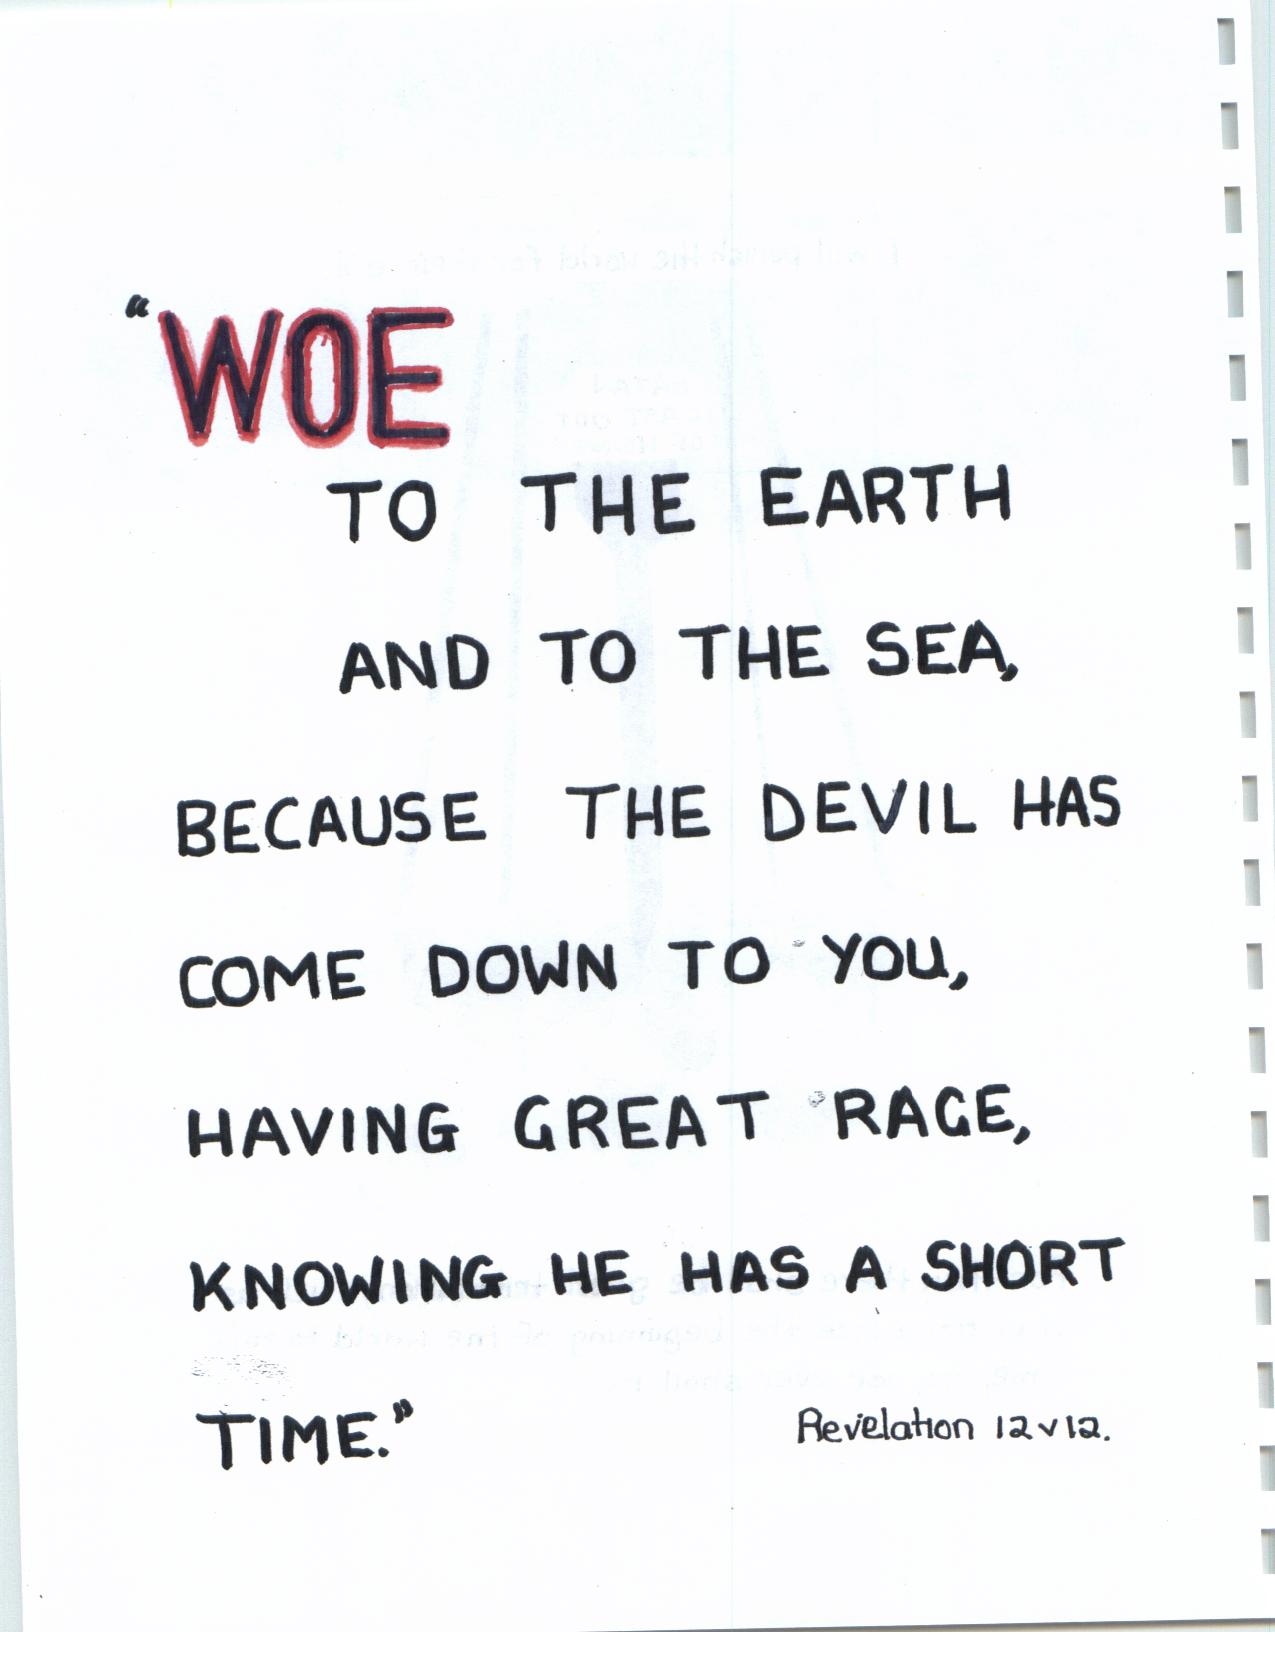 “WOE
TO THE EARTH
AND TO THE SEA,
BECAUSE THE DEVIL HAS
COME DOWN TO YOU,
HAVING GREAT RAGE,
KNOWING HE HAS A SHORT
TIME.”
Revelation 12 v 12.